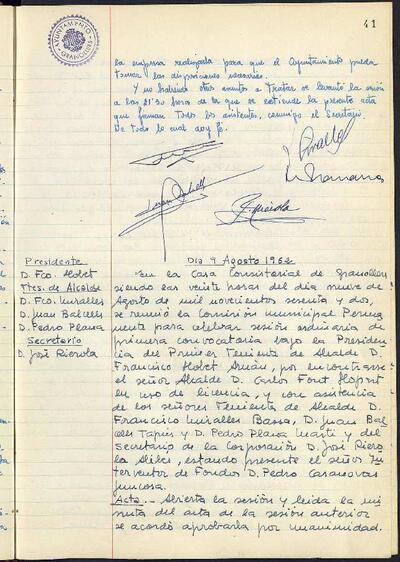 41
AYUNTAMIENTO
GRANOLLERS
la empresa realizada para que el Ayuntamiento pueda
tomar las disposiciones necesarias.
Y no habiendo otros asuntos a tratar se levantó la sesión
a las 21'30 horas de la que se extiende la presente acta
que firman todos los asistentes, conmigo el Secretario.
De todo lo cual doy fé.
Presidente
D. Fco. Llobet
Ttes. de Alcalde
D. Fco. Miralles
D. Juan Balcells
D. Pedro Plana
Secretario
D. José Rierola
Día 9 Agosto 1962
En la Casa Consistorial de Granollers
siendo las veinte horas del día nueve de
Agosto de mil novecientos sesenta y dos,
se reunió la Comisión municipal Perma
nente para celebrar sesión ordinaria de
primera convocatoria bajo la Presiden
cia del Primer Teniente de Alcalde D.
Francisco Llobet Arnán, por encontrarse
el señor Alcalde D. Carlos Font Llopart
en uso de licencia, y con asistencia
de los señores Tenientes de Alcalde D.
Francisco Miralles Bassa, D. Juan Bal
cells Tapies y D. Pedro Plana Martí y del
Secretario de la Corporación D. José Riero
la Alibes, estando presente el señor In
terventor de Fondos D. Pedro Casanovas
Juncosa.
Acta.- Abierta la sesión y leida la mi
nuta del acta de la sesión anterior
se acordó aprobarla por unanimidad.